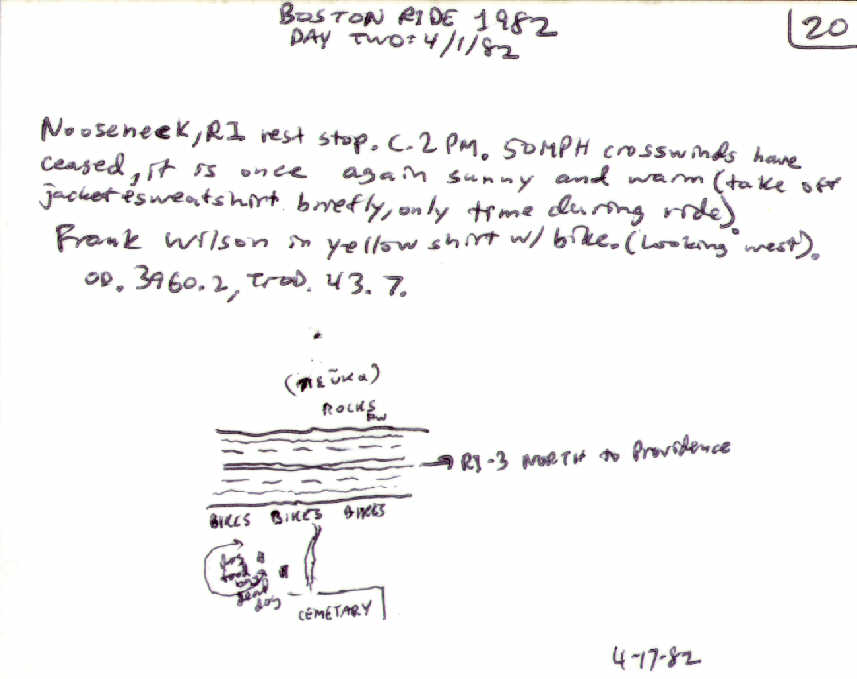 BOSTON RIDE 1982
DAY TWO: 4/1/82
20
Nooseneck, RI rest stop. C. 2 PM. 50MPH crosswinds have
ceased, it is once again sunny and warm (take off
jacket & sweatshirt briefly, only time during ride)
Frank Wilson in yellow shirt w/ bike. (Looking west).
OD. 3960.2, TrOD. 43.7.
(πεῦκα)
ROCKS
FW
RI-3 NORTH to Providence
BIKES BIKES BIKES
dog
food
and
dead
dog
CEMETARY
4-17-82